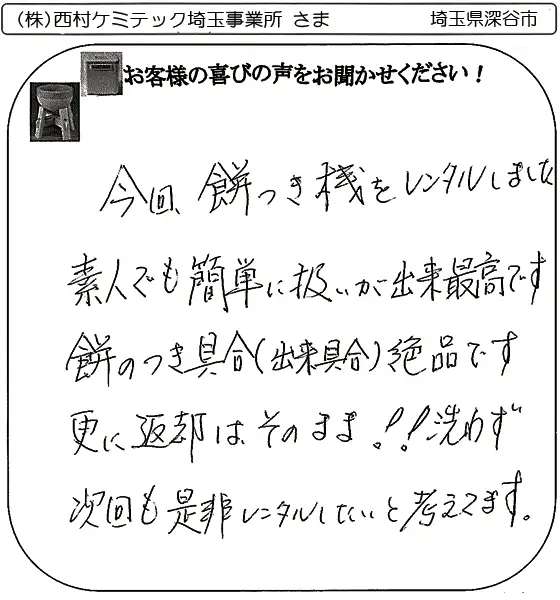 (株)西村ケミテック埼玉事業所 さま 埼玉県深谷市
お客様の喜びの声をお聞かせください！
今回、餅つき機をレンタルしました
素人でも簡単に扱いが出来最高です
餅のつき具合(出来具合)絶品です
更に返却はそのまま！！洗わず
次回も是非レンタルしたいと考えてます。